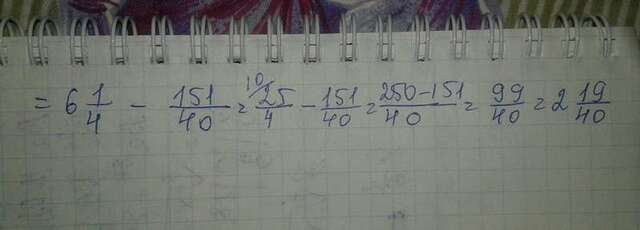 = 6 1/4 - 151/40 = 10/ 25/4 - 151/40 = 250-151/40 = 99/40 = 2 19/40